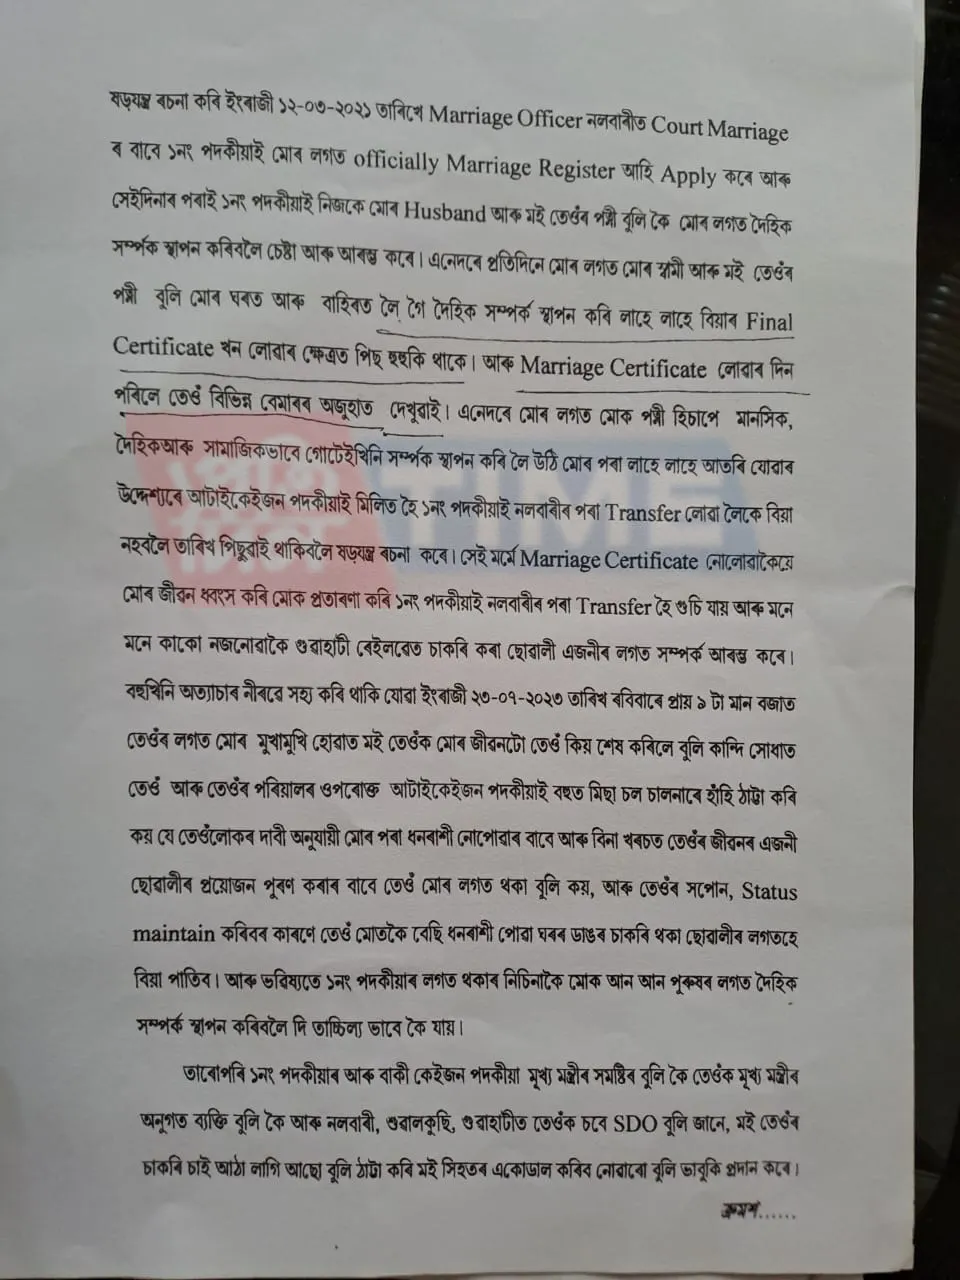 ষড়যন্ত্ৰ ৰচনা কৰি ইংৰাজী ১২-০৩-২০২১ তাৰিখে Marriage Officer নলবাৰীত Court Marriage
ৰ বাবে ১নং পদকীয়াই মোৰ লগত officially Marriage Register আহি Apply কৰে আৰু
সেইদিনাৰ পৰাই ১নং পদকীয়াই নিজকে মোৰ Husband আৰু মই তেওঁৰ পত্নী বুলি কৈ মোৰ লগত দৈহিক
সম্পৰ্ক স্থাপন কৰিবলৈ চেষ্টা আৰু আৰম্ভ কৰে। এনেদৰে প্ৰতিদিনে মোৰ লগত মোৰ স্বামী আৰু মই তেওঁৰ
পত্নী বুলি মোৰ ঘৰত আৰু বাহিৰত লৈ গৈ দৈহিক সম্পৰ্ক স্থাপন কৰি লাহে লাহে বিয়াৰ Final
Certificate খন লোৱাৰ ক্ষেত্ৰত পিছ হুহকি থাকে। আৰু Marriage Certificate লোৱাৰ দিন
পৰিলে তেওঁ বিভিন্ন বেমাৰৰ অজুহাত দেখুৱাই। এনেদৰে মোৰ লগত মোক পত্নী হিচাপে মানসিক,
দৈহিকআৰু সামাজিকভাবে গোটেইখিনি সম্পৰ্ক স্থাপন কৰি লৈ উঠি মোৰ পৰা লাহে লাহে আতৰি যোৱাৰ
উদ্দেশ্যৰে আটাইকেইজন পদকীয়াই মিলিত হৈ ১নং পদকীয়াই নলবাৰীৰ পৰা Transfer লোৱা লৈকে বিয়া
নহবলৈ তাৰিখ পিছুৱাই থাকিবলৈ ষড়যন্ত্ৰ ৰচনা কৰে। সেই মৰ্মে Marriage Certificate নোলোৱাকৈয়ে
মোৰ জীৱন ধ্বংস কৰি মোক প্ৰতাৰণা কৰি ১নং পদকীয়াই নলবাৰীৰ পৰা Transfer হৈ গুচি যায় আৰু মনে
মনে কাকো নজনোৱাকৈ গুৱাহাটী ৰেইলৱেত চাকৰি কৰা ছোৱালী এজনীৰ লগত সম্পৰ্ক আৰম্ভ কৰে।
বহুখিনি অত্যাচাৰ নীৰৱে সহ্য কৰি থাকি যোৱা ইংৰাজী ২৩-০৭-২০২৩ তাৰিখ ৰবিবাৰে প্ৰায় ১ টা মান বজাত
তেওঁৰ লগত মোৰ মুখামুখি হোৱাত মই তেওঁক মোৰ জীৱনটো তেওঁ কিয় শেষ কৰিলে বুলি কান্দি সোধাত
তেওঁ আৰু তেওঁৰ পৰিয়ালৰ ওপৰোক্ত আটাইকেইজন পদকীয়াই বহুত মিছা চল চালনাৰে হাঁহি ঠাট্টা কৰি
কয় যে তেওঁলোকৰ দাবী অনুযায়ী মোৰ পৰা ধনৰাশী নোপোৱাৰ বাবে আৰু বিনা খৰচত তেওঁৰ জীৱনৰ এজনী
ছোৱালীৰ প্ৰয়োজন পূৰণ কৰাৰ বাবে তেওঁ মোৰ লগত থকা বুলি কয়, আৰু তেওঁৰ সপোন, Status
maintain কৰিবৰ কাৰণে তেওঁ মোতকৈ বেছি ধনৰাশী পোৱা ঘৰৰ ডাঙৰ চাকৰি থকা ছোৱালীৰ লগতহে
বিয়া পাতিব। আৰু ভৱিষ্যতে ১নং পদকীয়াৰ লগত থকাৰ নিচিনাকৈ মোক আন আন পুৰুষৰ লগত দৈহিক
সম্পৰ্ক স্থাপন কৰিবলৈ দি তাচ্চিল্য ভাবে কৈ যায়।
তাৰোপৰি ১নং পদকীয়াৰ আৰু বাকী কেইজন পদকীয়া মুখ্য মন্ত্ৰীৰ সমষ্টিৰ বুলি কৈ তেওঁক মুখ্য মন্ত্ৰীৰ
অনুগত ব্যক্তি বুলি কৈ আৰু নলবাৰী, গুৱালকুছি, গুৱাহাটীত তেওঁক চবে SDO বুলি জানে, মই তেওঁৰ
চাকৰি চাই আঠা লাগি আছো বুলি ঠাট্টা কৰি মই সিহতৰ একোডাল কৰিব নোৱাৰো বুলি ভাবুকি প্ৰদান কৰে।
ক্ৰমশ......
TIME